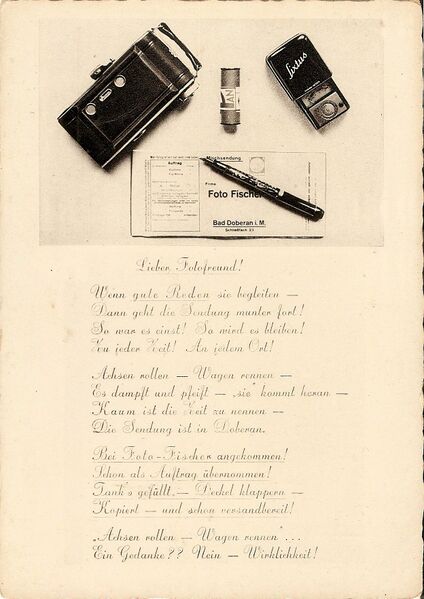 Sixtus
AN
Auftrag
Mischsendung
Firma
Foto Fischer
Bad Doberan i. M.
Lieber Fotofreund!
Wenn gute Reden sie begleiten —
Dann geht die Sendung munter fort!
So war es einst! So wird es bleiben!
Zu jeder Zeit! An jedem Ort!
Achsen rollen — Wagen rennen —
Es dampft und pfeift — „sie“ kommt heran —
Kaum ist die Zeit zu nennen —
Die Sendung ist in Doberan.
Bei Foto-Fischer angekommen!
Schon als Auftrag übernommen!
Tank's gefüllt. — Deckel klappern —
Kopiert — und schon versandbereit!
„Achsen rollen — Wagen rennen“ ...
Ein Gedanke?? Nein — Wirklichkeit!